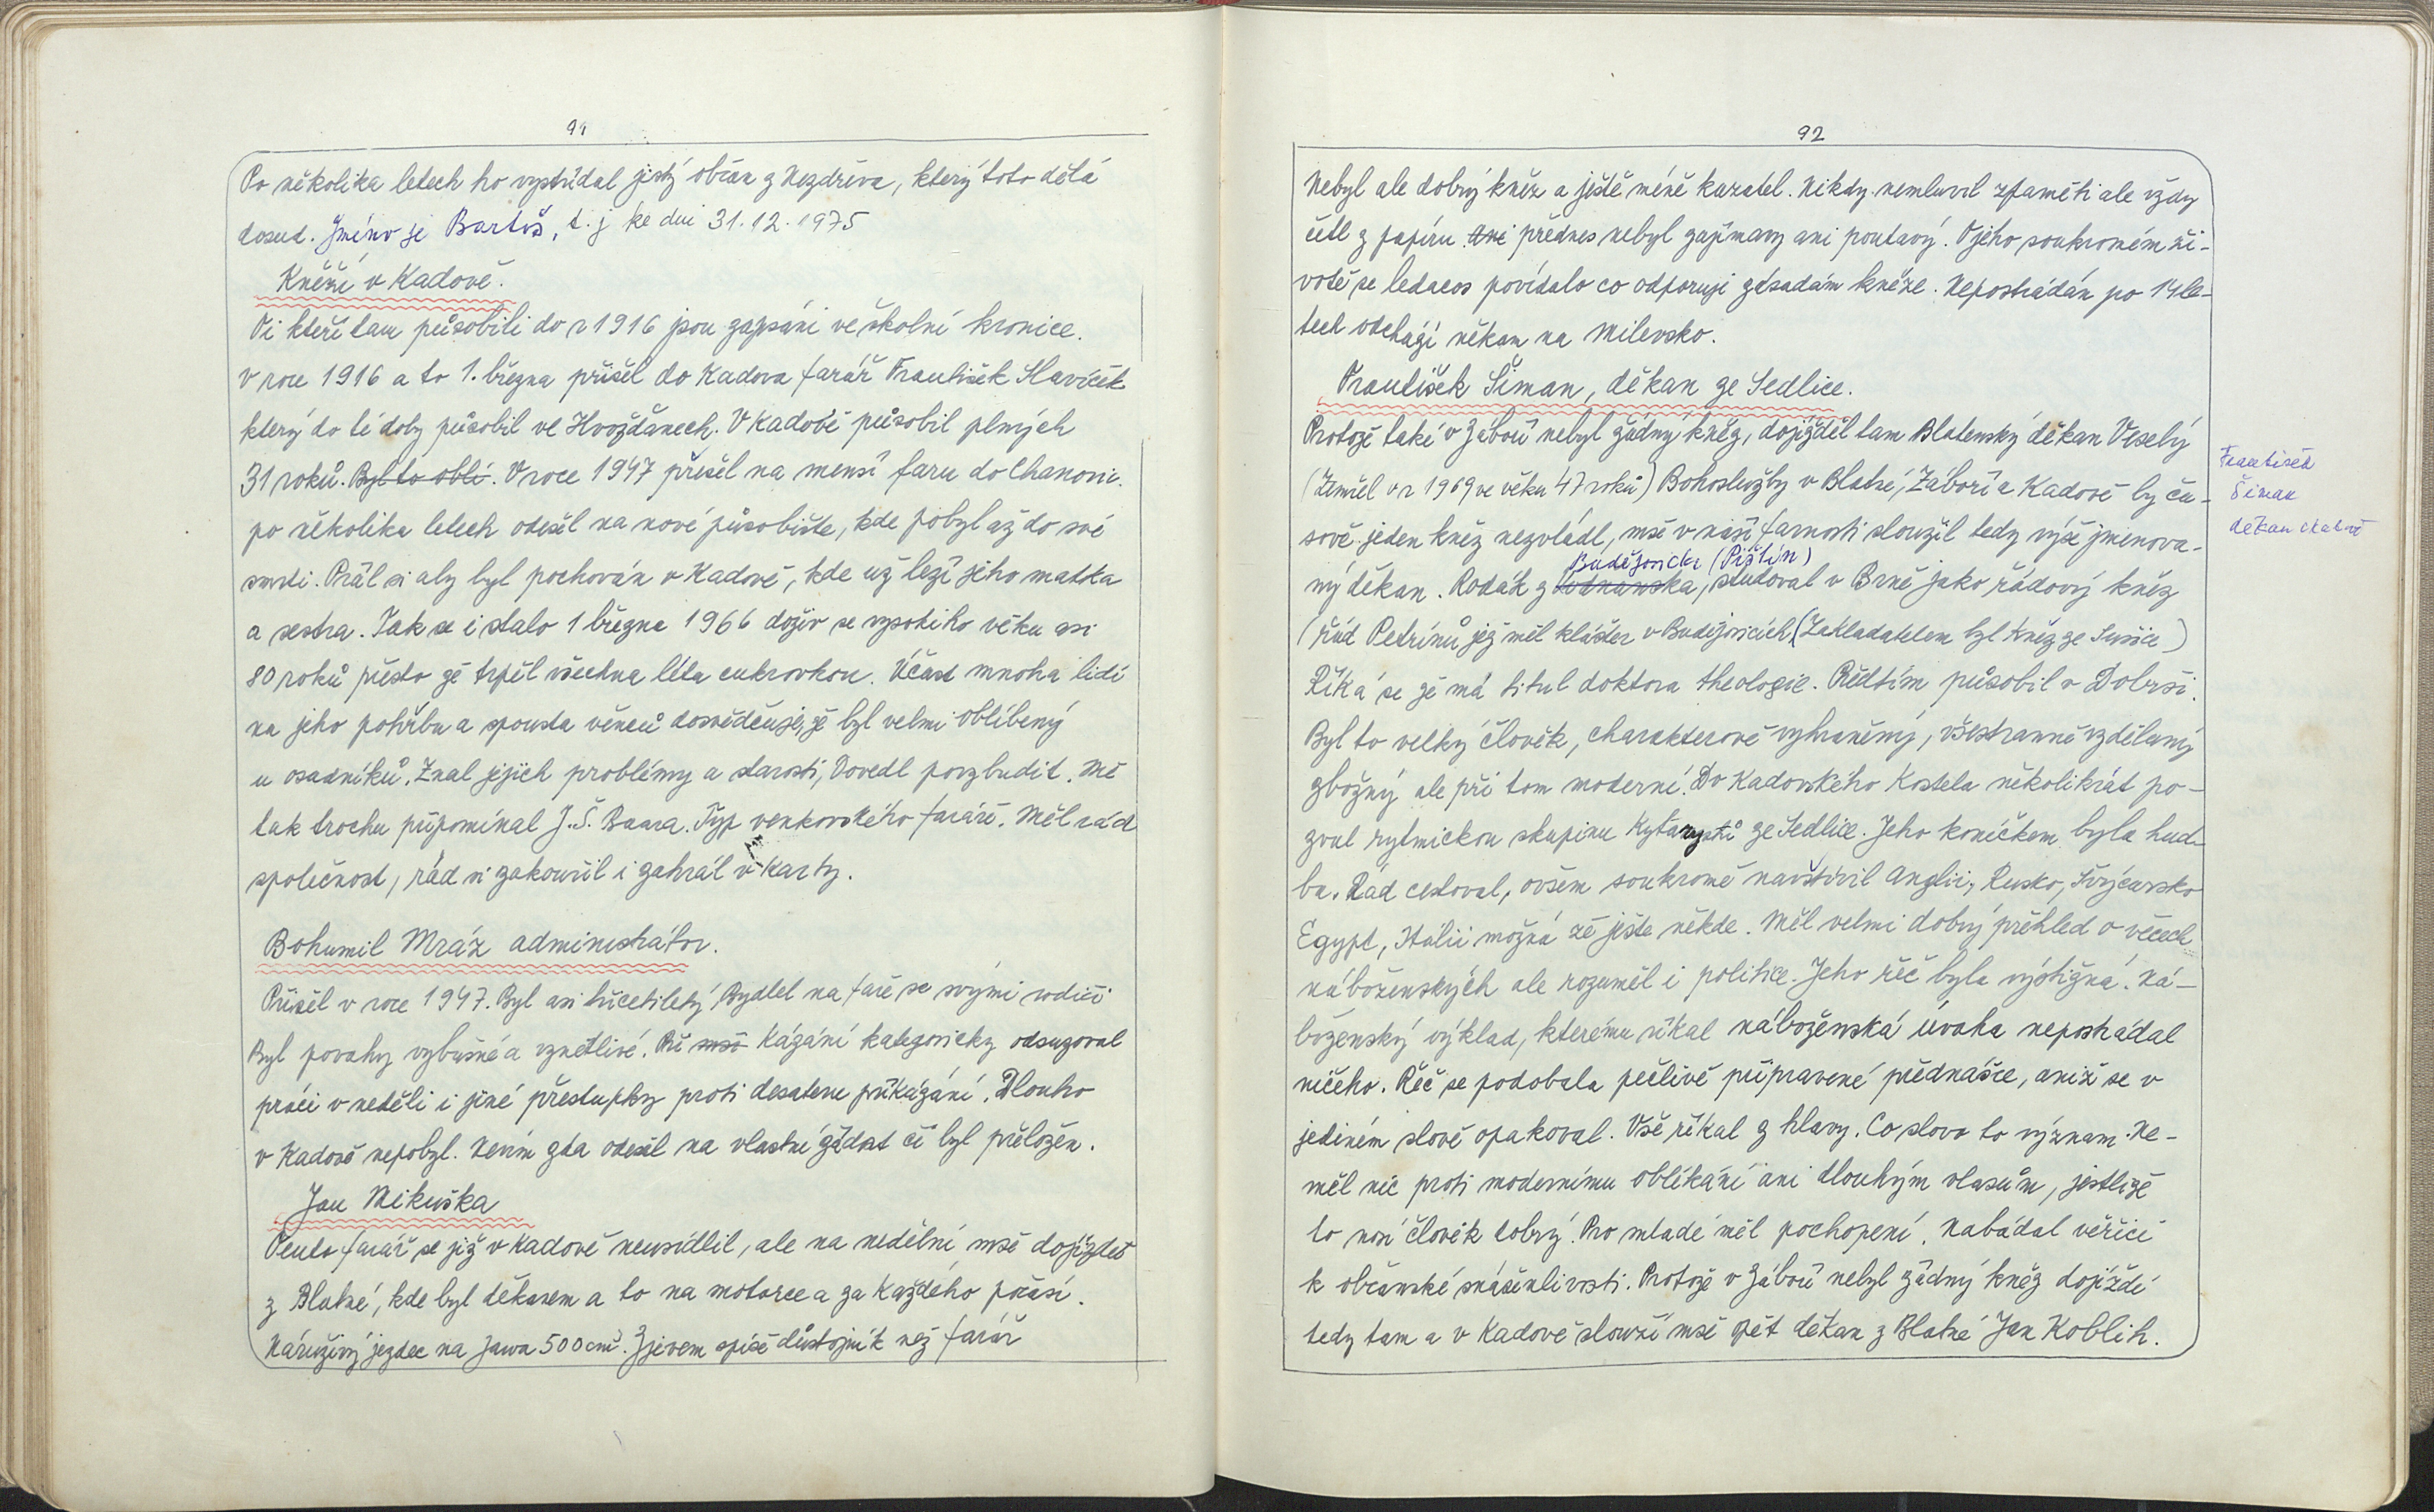 91
Po několika letech ho vystřídal jistý občan z Nezdřeva, který toto dělá
dosud. Jméno je Bartoš, t. j ke dni 31. 12. 1975
Kněží v Kadově.
Ti kteří tam působili do r 1916 jsou zapsáni ve školní kronice.
V roce 1916 a to 1. března přišel do Kadova farář František Slavíček
který do té doby působil ve Hvožďanech. V Kadově působil plných
31 roků. Byl to oblí. V roce 1947 přešel na menší faru do Chanovic.
po několika letech odešel na nové působiště, kde pobyl až do své
smrti. Přál si aby byl pochován v Kadově, kde už leží jeho matka
a sestra. Tak se i stalo 1 března 1966 doživ se vysokého věku asi
80 roků přesto že trpěl všechna léta cukrovkou. Účast mnoha lidí
na jeho pohřbu a spousta věnců dosvědčuje, že byl velmi oblíbený
u osadníků. Znal jejich problémy a starosti, Dovedl povzbudit. Mě
tak trochu připomínal J. Š. Baara. Typ venkovského faráře. Měl rád
společnost, rád si zakouřil i zahrál v karty.
Bohumil Mráz administrátor.
Přišel v roce 1947. Byl asi třicetiletý Bydlel na faře se svými rodiči
Byl povahy výbušné a vznětlivé. Při mši Kázání kategoricky odsuzoval
práci v neděli i jiné přestupky proti desateru přikázání. Dlouho
v Kadově nepobyl. Nevím zda odešel na vlastní žádost či byl přeložen.
Jan Mikuška
Tento farář se již v Kadově neusídlil, ale na nedělní mše dojížděl
z Blatné, kde byl děkanem a to na motorce a za každého počasí.
Náruživý jezdec na Jawa 500 cm³. Zjevem spíše důstojník než farář
92
Nebyl ale dobrý kněz a ještě méně kazatel. Nikdy nemluvil zpaměti ale vždy
četl z papíru. Ani přednes nebyl zajímavý ani poutavý. O jeho soukromém ži-
votě se ledacos povídalo co odporuji zásadám kněze. Nepostrádán po 14 le-
tech odchází někam na Milevsko.
František Šiman, děkan ze Sedlice.
Protože také v Záboří nebyl žádný kněz, dojížděl tam Blatenský děkan Veselý
(Zemřel v r 1969 ve věku 47 roků) Bohoslužby v Blatné, Záboří a Kadově by ča-
sově jeden kněz nezvládl, mše v naší farnosti sloužil tedy výše jmenova-
Budějovicka (Pištín)
ný děkan. Rodák z Vodňanska, studoval v Brně jako řádový kněz
(řád Petrínů jež měl klášter v Budějovicích (Zakladatelem byl kněz ze Sušice)
Říká se že má titul doktora theologie. Předtím působil v Dobrši.
Byl to velký člověk, charakterově vyhraněný, všestranně vzdělaný
zbožný ale při tom moderní. Do Kadovského Kostela několikrát po-
zval rytmickou skupinu Kytaristů ze Sedlice. Jeho koníčkem byla hud-
ba. Rád cestoval, ovšem soukromě navštívil Anglii, Rusko, Švýcarsko
Egypt, Itálii možná že ješte někde. Měl velmi dobrý přehled o věcech
náboženských ale rozuměl i politice. Jeho řeč byla výstižná. Ná-
boženský výklad, kterému říkal náboženská úvaha nepostrádal
ničeho. Řeč se podobala pečlivě připravené přednášce, aniž se v
jediném slově opakoval. Vše říkal z hlavy. Co slovo to význam. Ne-
měl nic proti modernímu oblíkání ani dlouhým vlasům, jestliže
to nosí člověk dobrý. Pro mladé měl pochopení. Nabádal věřící
k občanské snášenlivosti. Protože v Záboří nebyl žádný kněz dojíždí
tedy tam a v Kadově slouží mše opět děkan z Blatné Jan Koblih.
František
Šiman
děkan